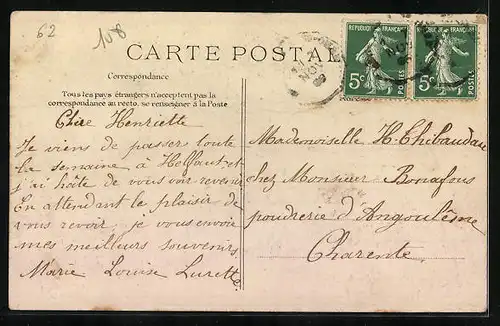 62
108
CARTE POSTALE
Correspondance
Tous les pays étrangers n'acceptent pas la
correspondance au recto, se renseigner à la Poste
Chère Henriette
Je viens de passer toute
la semaine, à Helfaut et
j'ai hâte de vous voir revenir
En attendant le plaisir de
vous revoir, je vous envoie
mes meilleurs souvenirs
Marie Louise Lurette
REPUBLIQUE FRANÇAISE
5c POSTES
REPUBLIQUE FRANÇAISE
5c POSTES
NOV
Mademoiselle H. Chibaudau
chez Monsieur Bonafous
poudrerie d'Angoulême
Charente